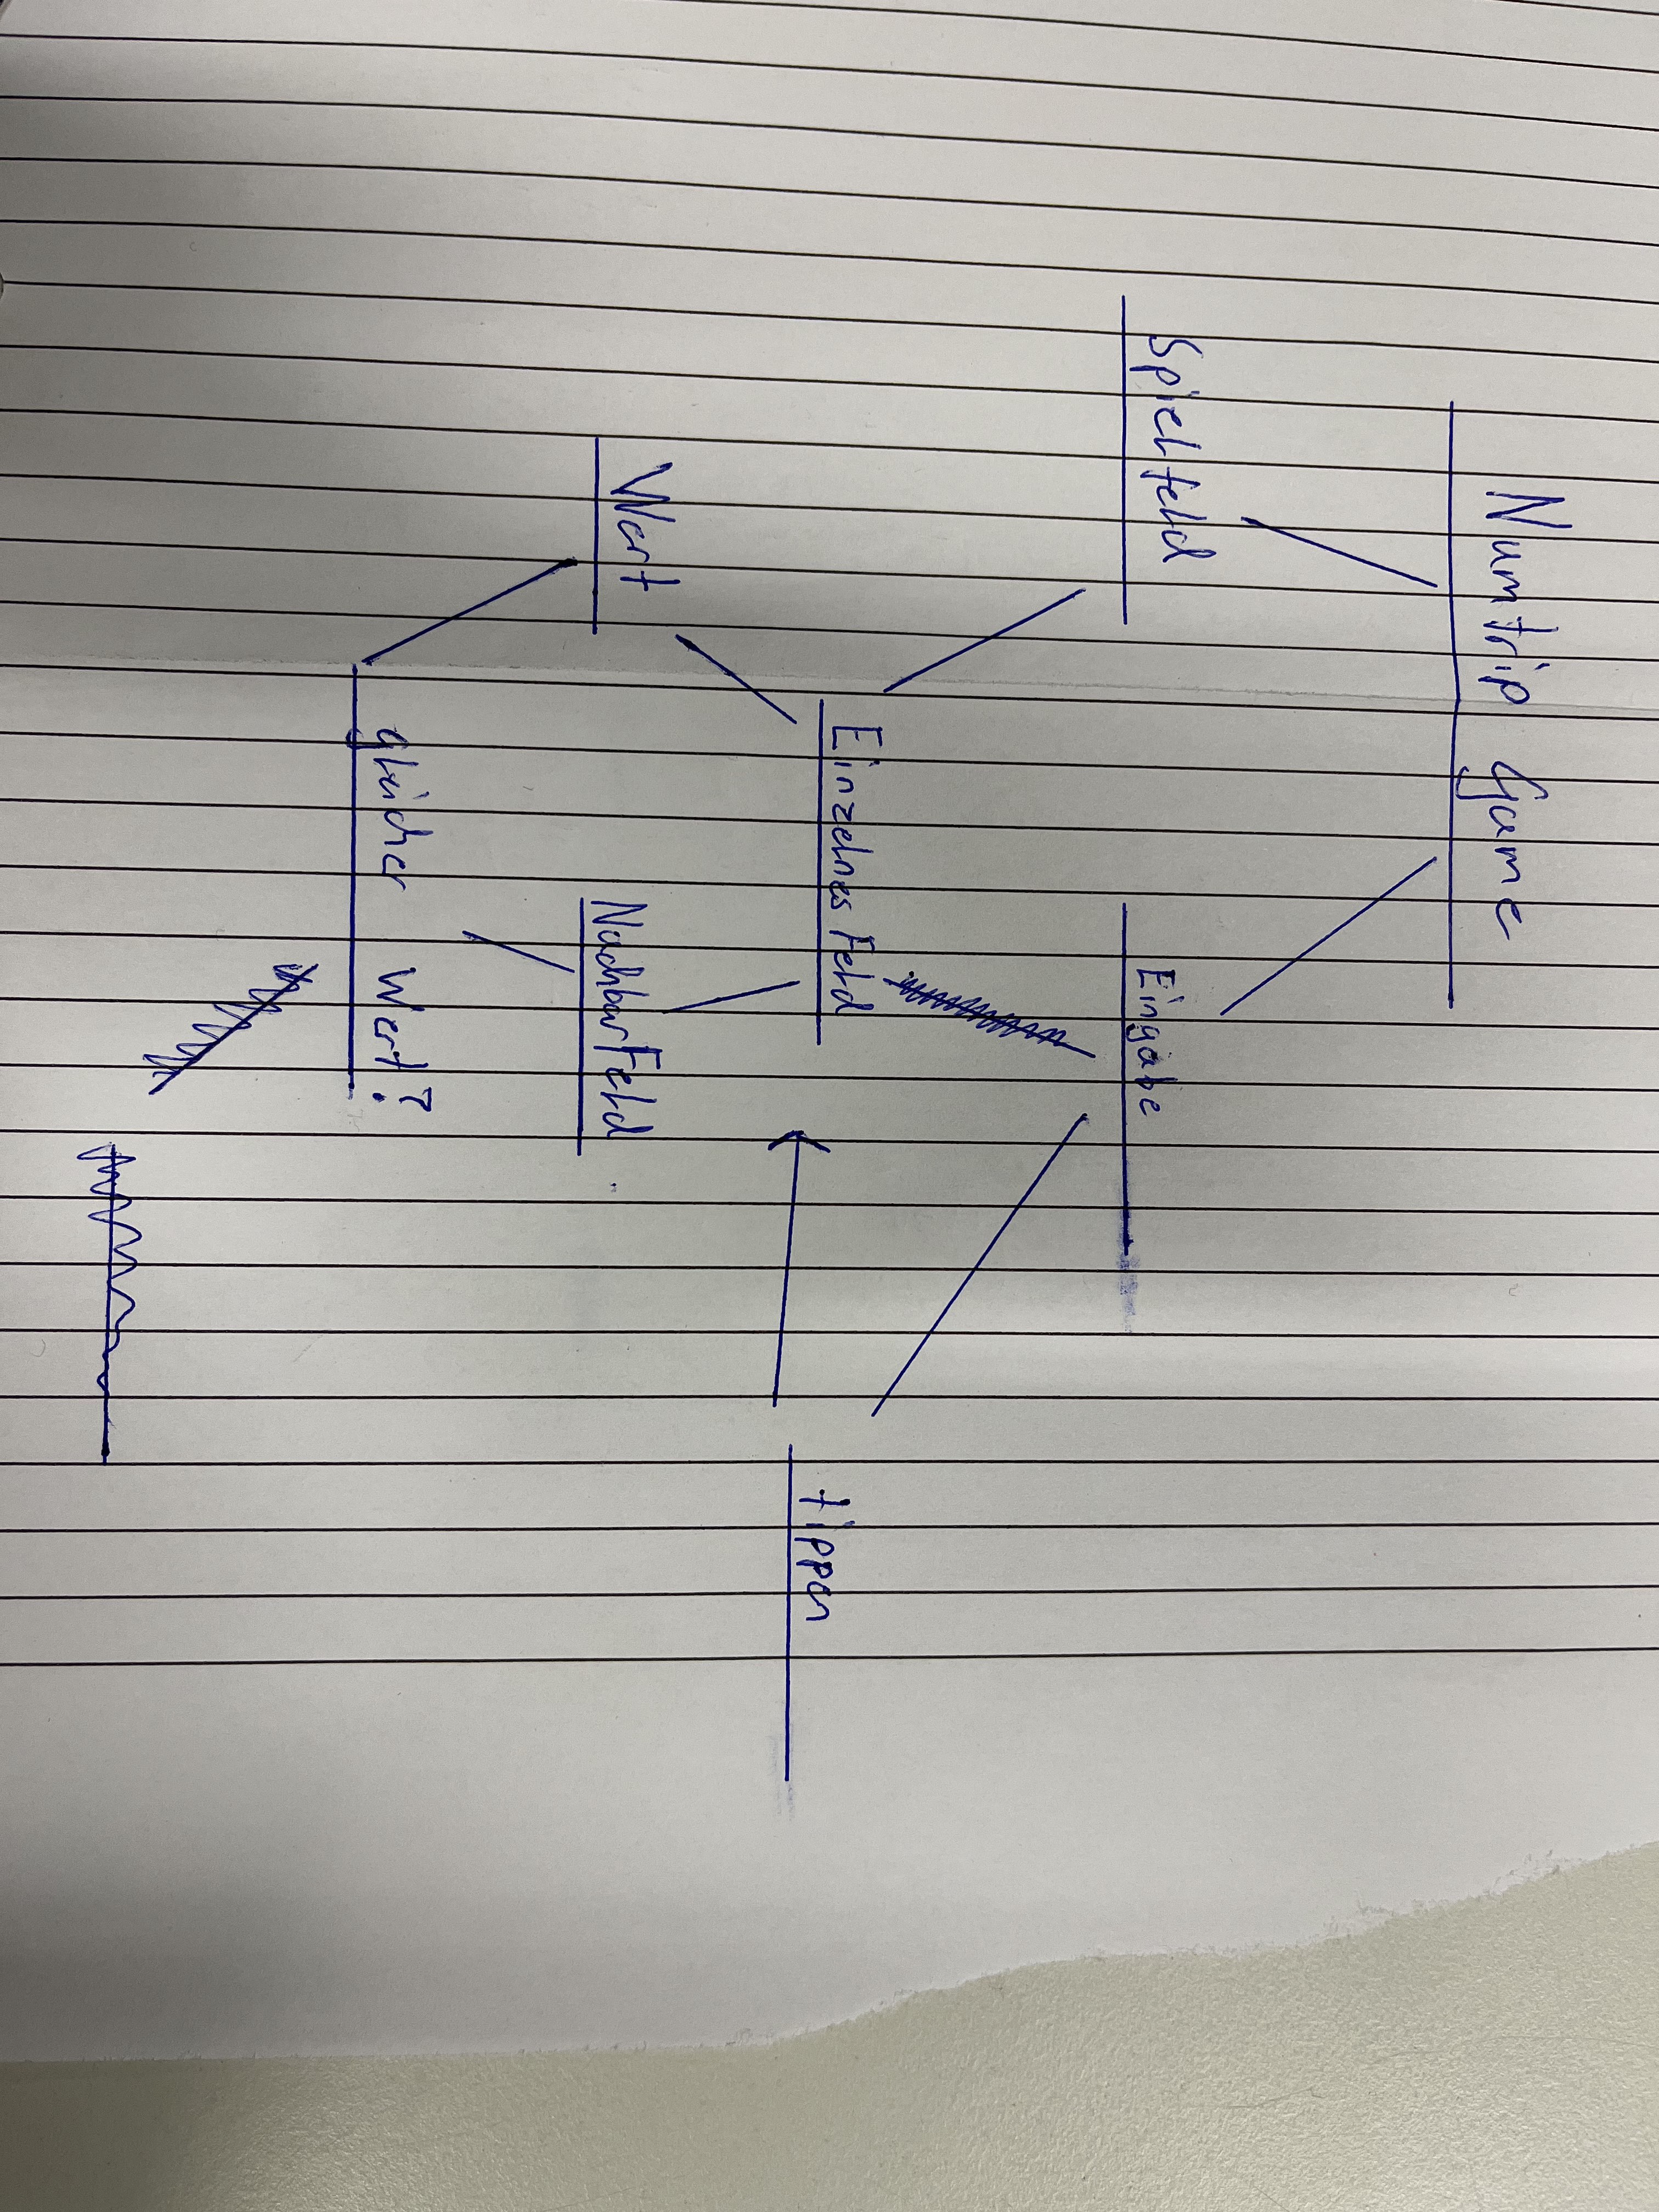 Numtrip Game
Spielfeld
Eingabe
Einzelnes Feld
tippen
Wert
NachbarFeld
gleicher Wert?